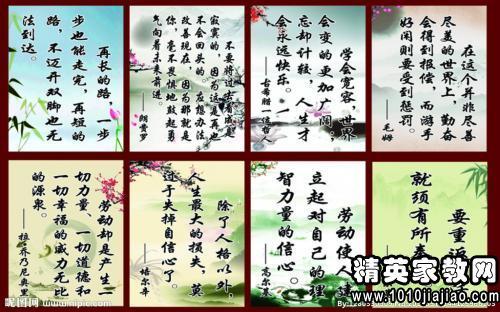 再长的路，一步
步也能走完，再短的
路，不迈开双脚也无
法到达。
不要将过去看成是
寂寞的，因为这是再也
不会回头的。应想办法
改善现在，因为那就是
你，毫不畏惧地鼓起勇
气向着未来前进。
——朗费罗
学会宽容，世界
会变的更加广阔；
忘却计较，人生才
会永远快乐。
——古希腊一哲人
在这个并非尽善
尽美的世界上，勤奋
会得到报偿，而游手
好闲则要受到惩罚。
——毛姆
劳动却是产生一
切力量、一切道德和
一切幸福的威力无比
的源泉。
——拉·乔乃尼奥里
除了人格以外，
人生最大的损失，莫
过于失掉自信心了。
——培尔辛
劳动使人建
立起对自己的理
智力量的信心。
——高尔基
要重返
就须有所
昵图网 www.nipic.com
精英家教网
www.1010jiajiao.com